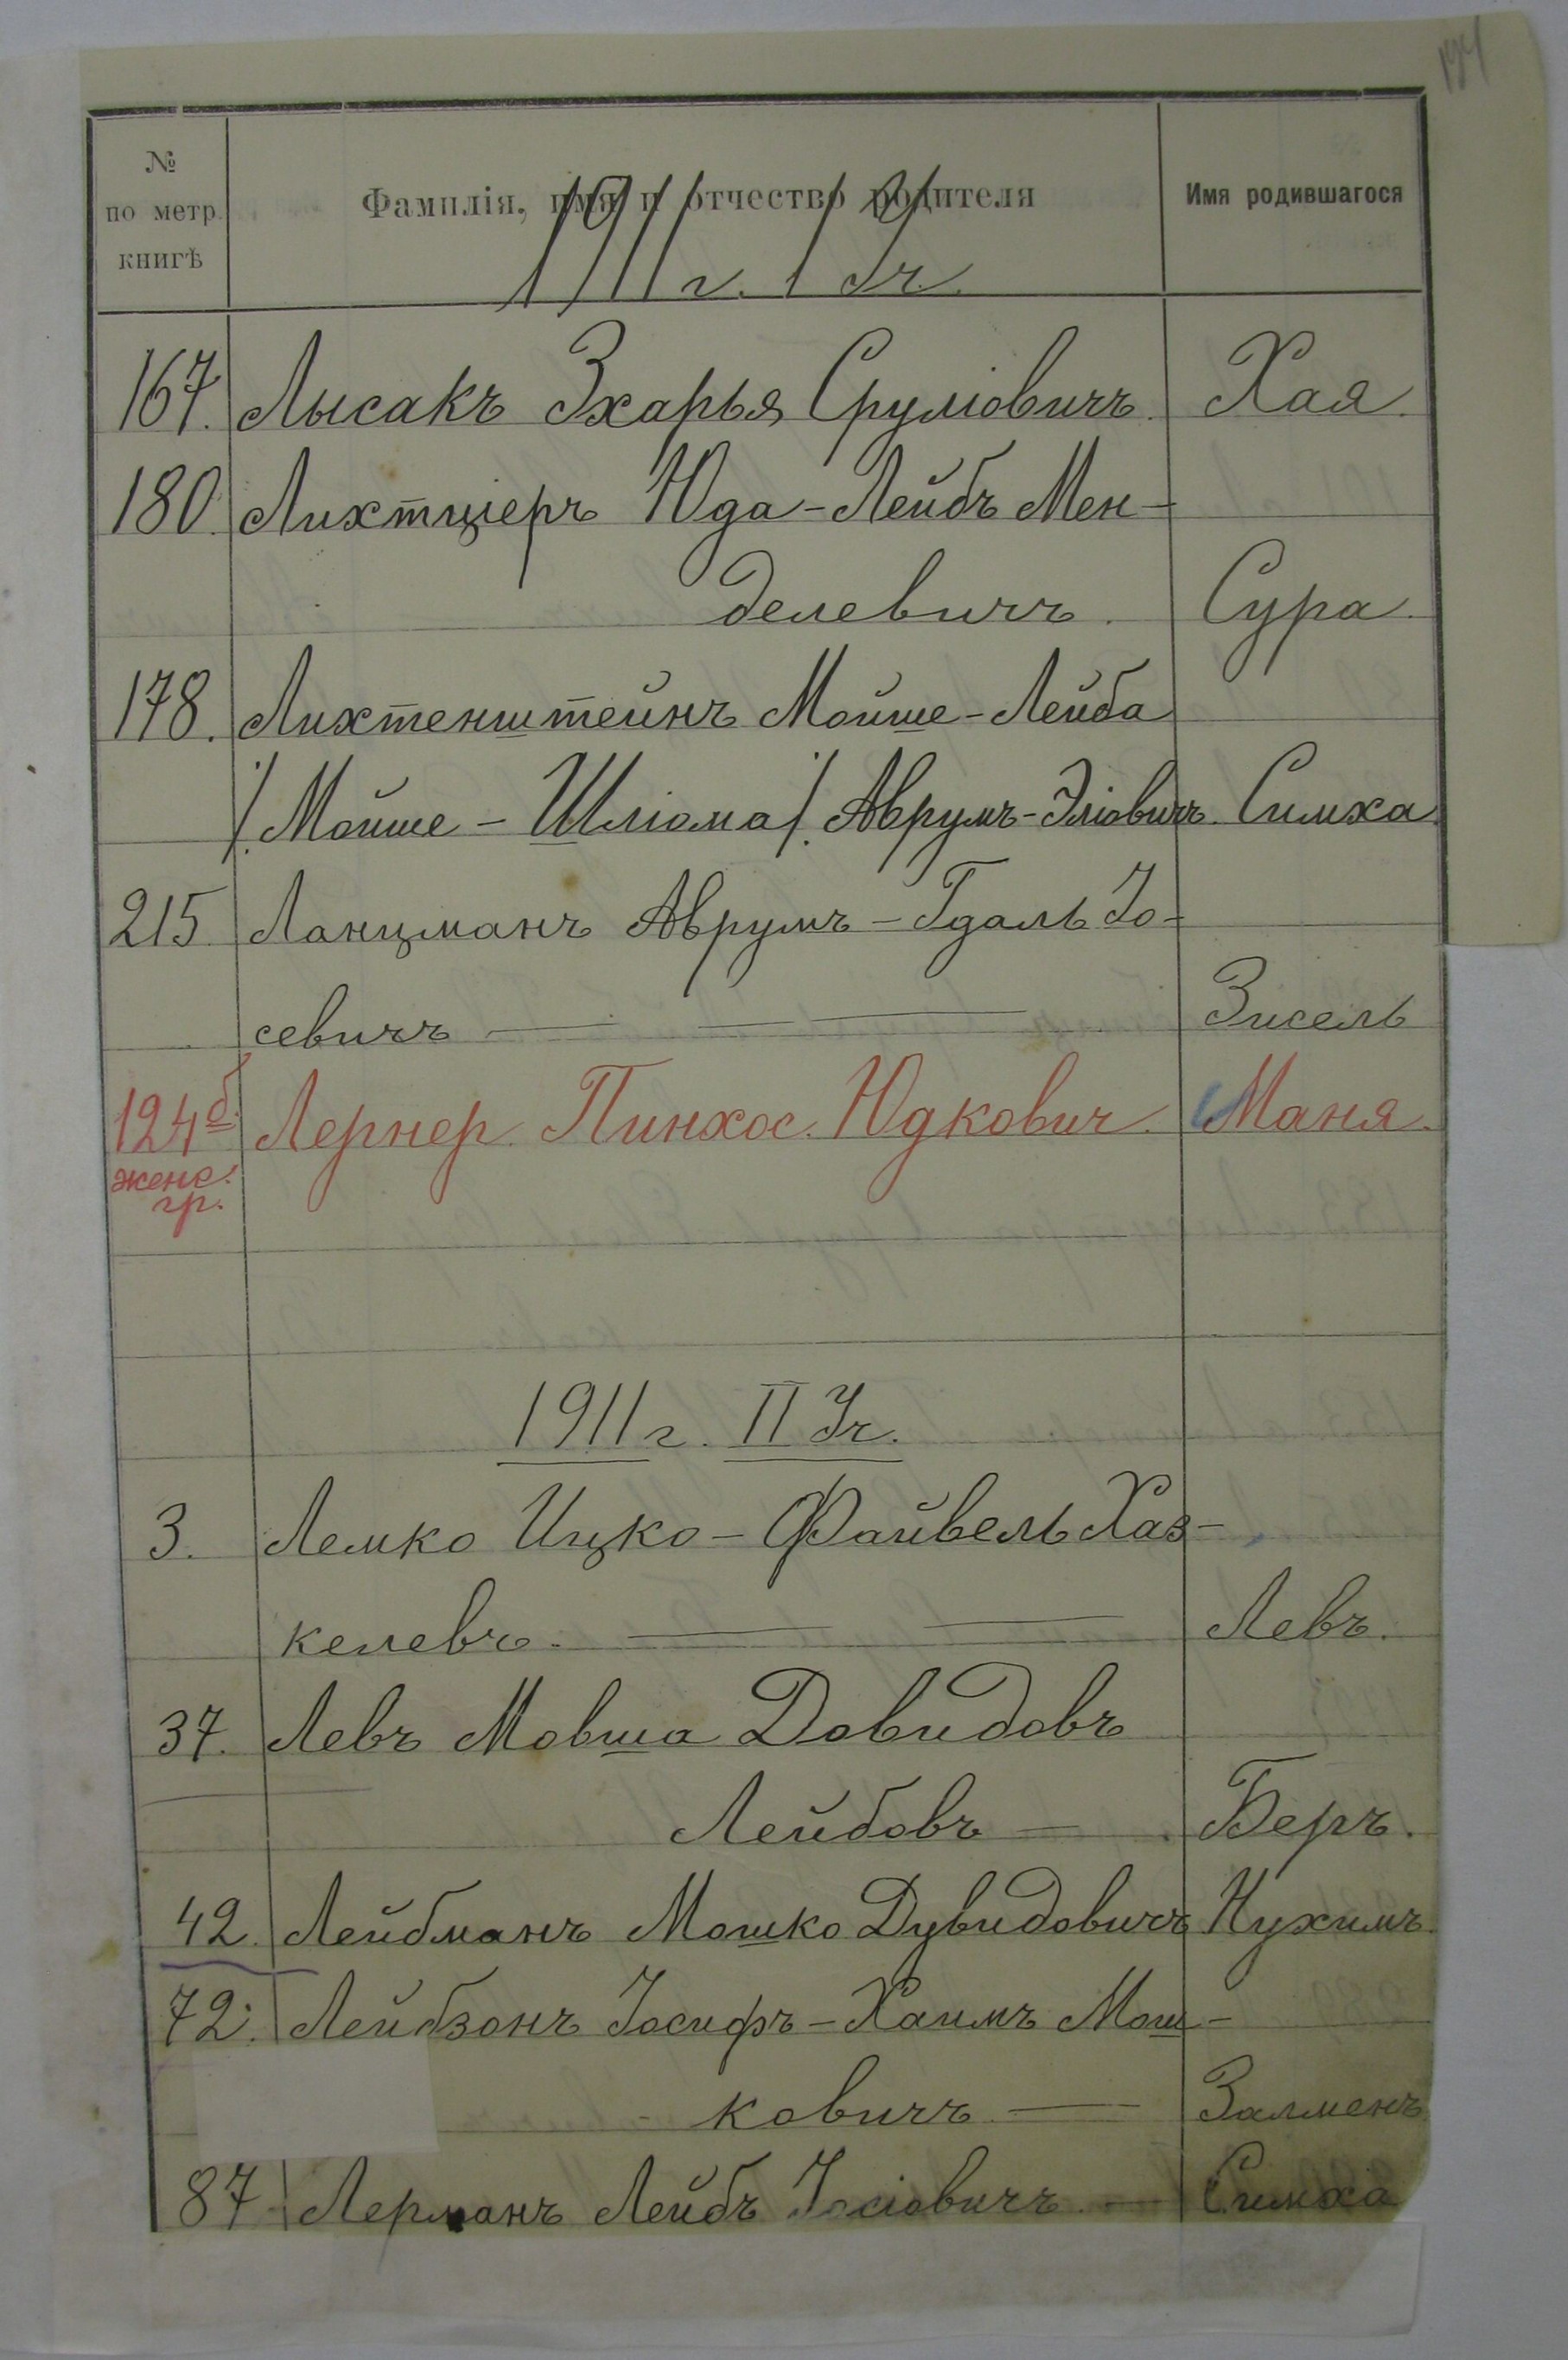 № по метр. книгѣ
Фамилія, имя и отчество родителя
Имя родившагося
1911 г. I Уч.
167. Лысакъ Зхарья Сруліовичъ. Хая.
180. Лихтціеръ Юда-Лейбъ Мен-
делевичъ. Сура.
178. Лихтенштейнъ Мойше-Лейба
/Мойше-Шліома/ Аврумъ-Эліовичъ. Симха
215. Ланцманъ Аврумъ-Гдаль Іо-
севичъ Зисель
124б. Лернер Пинхос. Юдкович. Маня.
женс.
гр.
1911 г. II Уч.
3. Лемко Ицко-Файвель Хаз-
келевъ. Левъ.
37. Левъ Мовша Довидовъ
Лейбовъ Беръ.
42. Лейбманъ Мошко Дувидовичъ Нухимъ.
72. Лейбзонъ Іосифъ-Хаимъ Мош-
ковичъ Залменъ
87. Лерманъ Лейбъ Іосіовичъ. Симха